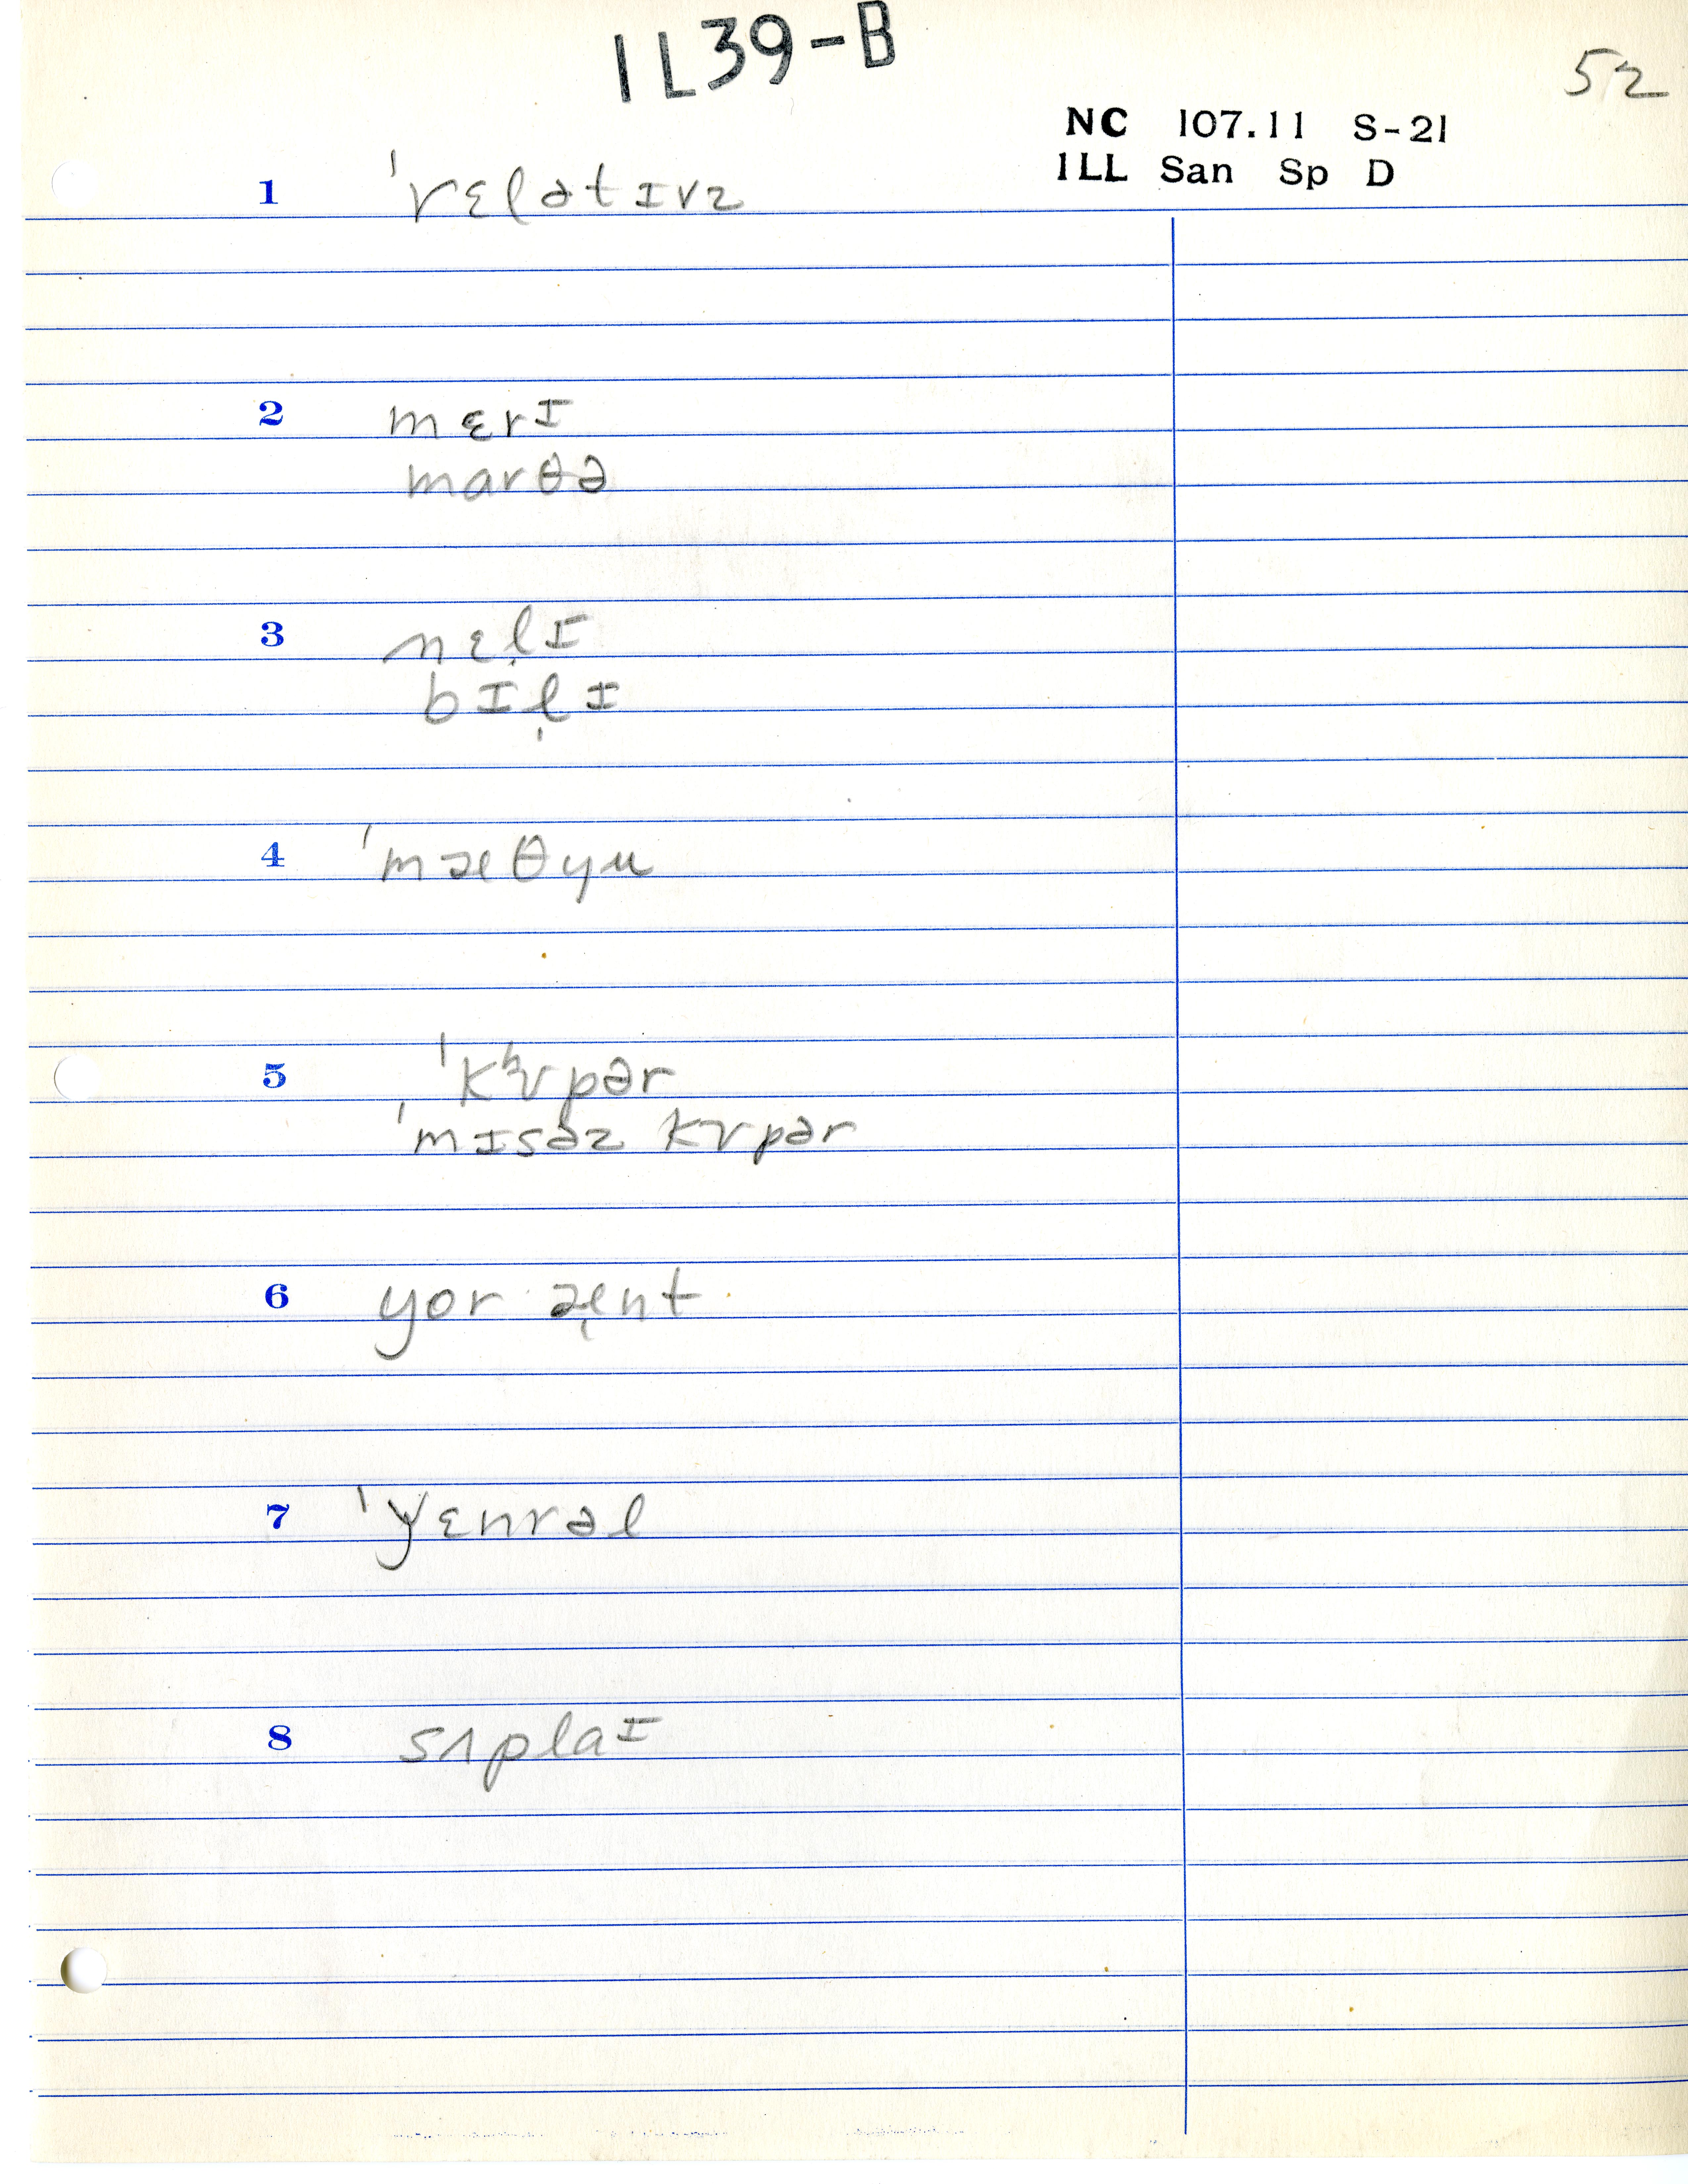 1L39-B
52
NC 107.11 S-21
1LL San Sp D
1 ˈrɛlətɪvz
2 mɛrɪ
marθə
3 nɛl̩ɪ
bɪl̩ɪ
4 ˈmæθyu
5 ˈkʰʊpər
ˈmɪsəz kʊpər
6 yor æ̜nt
7 ˈy̌ɛnrəl
8 sʌplaɪ